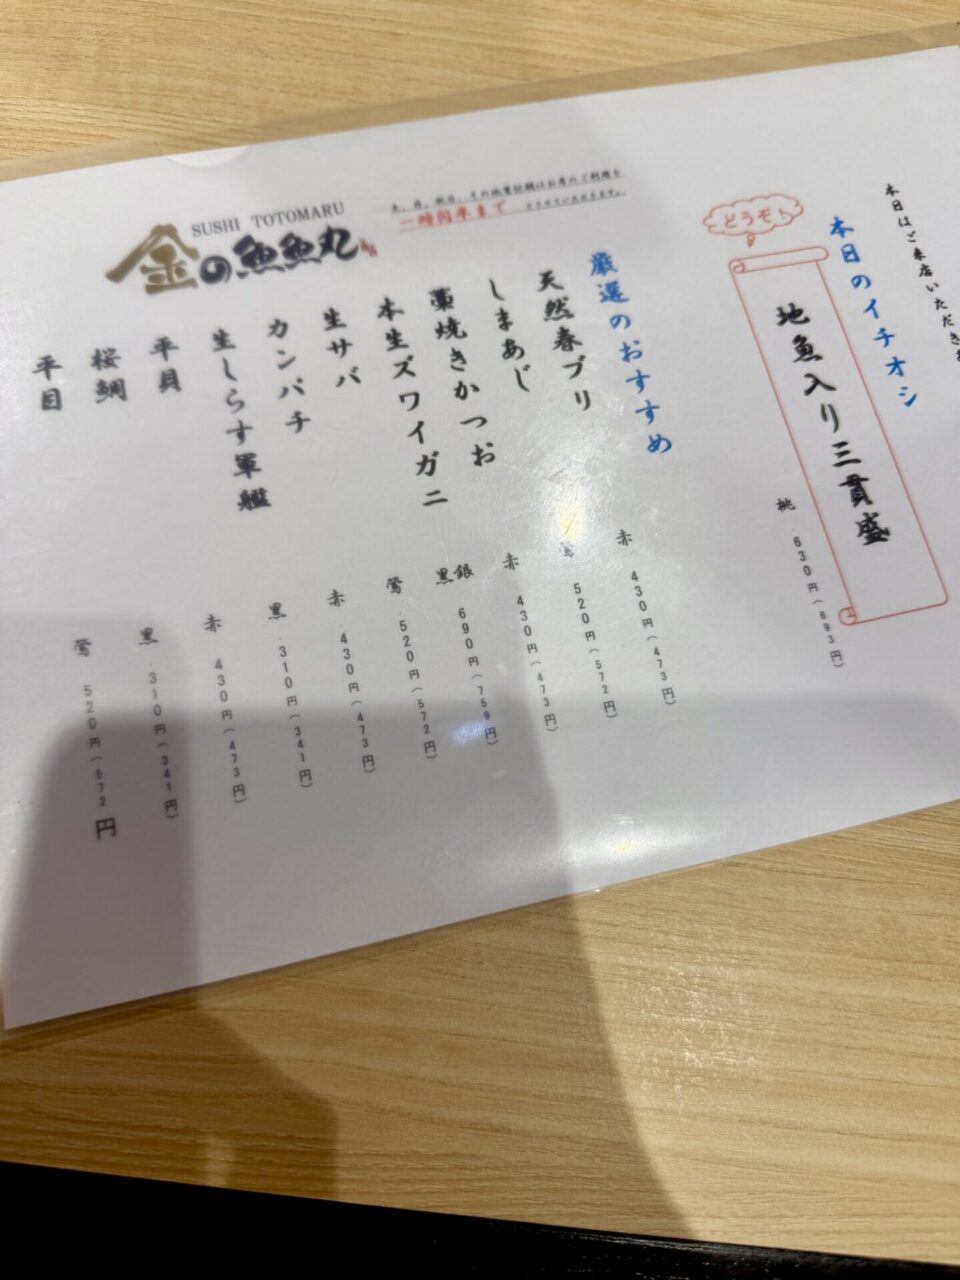 本日はご来店いただき
本日のイチオシ
どうぞ!
地魚入り三貫盛
桃 .630円(693円)
厳選のおすすめ
天然春ブリ
赤 430円(473円)
しまあじ
鶯 520円(572円)
藁焼きかつお
赤 430円(473円)
本生ズワイガニ
黒銀 690円(759円)
生サバ
鶯 .520円(572円)
カンパチ
赤 .430円(473円)
生しらす軍艦
黒 .310円(341円)
平貝
赤 .430円(473円)
桜鯛
黒 .310円(341円)
平目
鶯 520円(572円
土、日、祝日、その他繁忙期はお席のご利用を
一時間半まで とさせていただきます。
SUSHI TOTOMARU
金の魚魚丸